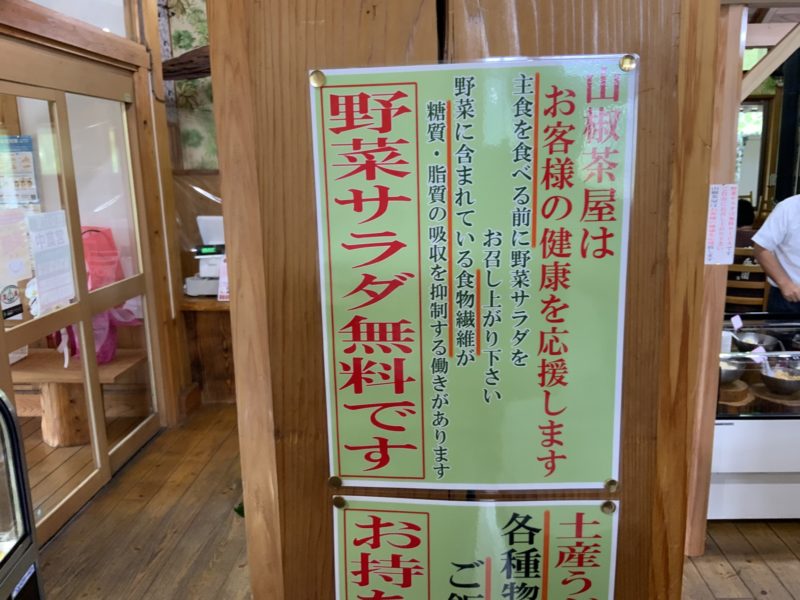 山椒茶屋は
お客様の健康を応援します
主食を食べる前に野菜サラダを
お召し上がり下さい
野菜に含まれている食物繊維が
糖質・脂質の吸収を抑制する働きがあります
野菜サラダ無料です
土産う
各種物
ご飯
お持